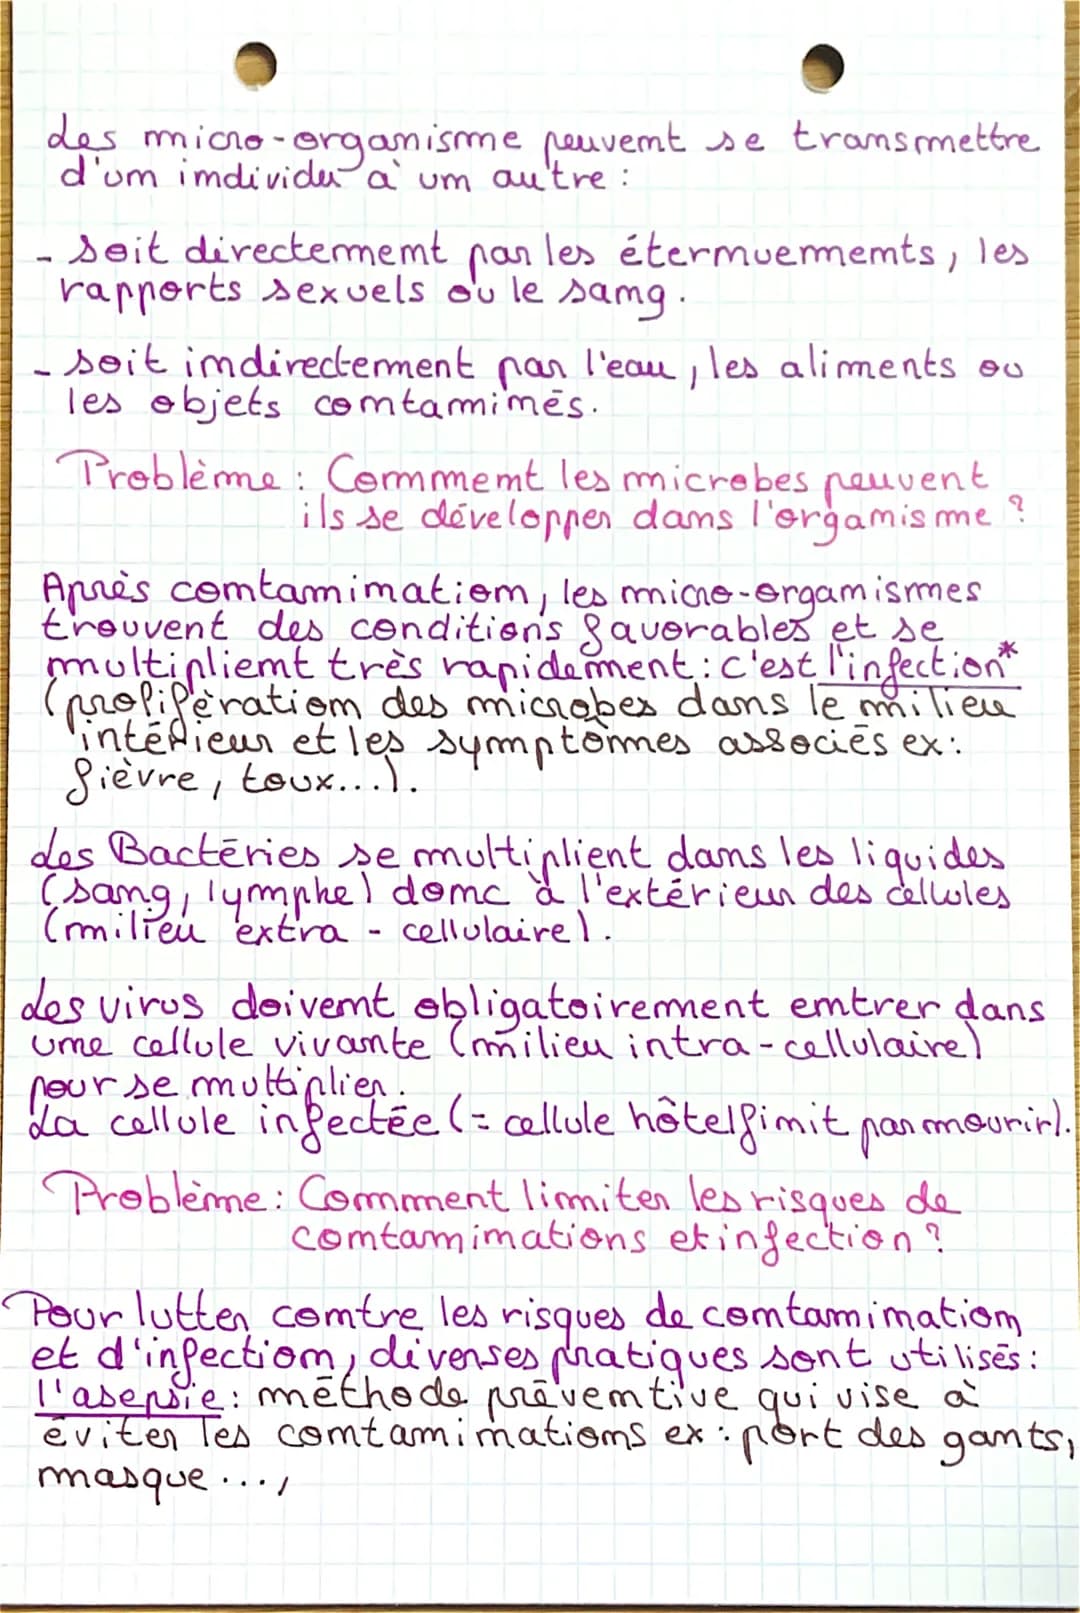 Les micro-organisme peuvent se transmettre
d'un individu à un autre :
- soit directement par les éternuements, les
rapports sexuels ou le sang.
- soit indirectement par l'eau, les aliments ou
les objets contaminés.
Problème : Comment les microbes peuvent
ils se développer dans l'organisme ?
Après contamination, les micro-organismes
trouvent des conditions favorables et se
multiplient très rapidement : c'est l'infection*
(prolifération des microbes dans le milieu
intérieur et les symptômes associés ex :
fièvre, toux...).
Les Bactéries se multiplient dans les liquides
(sang, lymphe) donc à l'extérieur des cellules
(milieu extra - cellulaire).
Les virus doivent obligatoirement entrer dans
une cellule vivante (milieu intra-cellulaire)
pour se multiplier.
La cellule infectée (= cellule hôte(finit par mourir).
Problème : Comment limiter les risques de
contaminations et infection ?
Pour lutter contre les risques de contamination
et d'infection, diverses pratiques sont utilisés :
l'asepsie : méthode préventive qui vise à
éviter les contaminations ex : port des gants,
masque ...,